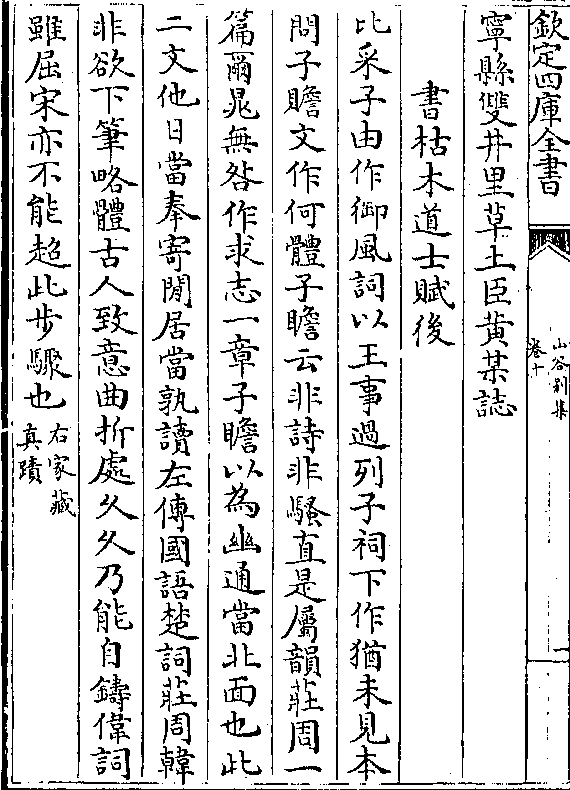 欽定四庫全書
山谷別集
卷十
寧縣雙井里草土臣黃某誌
書枯木道士賦後
比采子由作御風詞以王事過列子祠下作猶未見本
問子瞻文作何體子瞻云非詩非騷直是屬韻莊周一
篇爾晁無咎作求志一章子瞻以為幽通當北面也此
二文他日當奉寄閒居當孰讀左傳國語楚詞莊周韓
非欲下筆略體古人致意曲折處久久乃能自鑄偉詞
雖屈宋亦不能超此步驟也
右家藏
真蹟